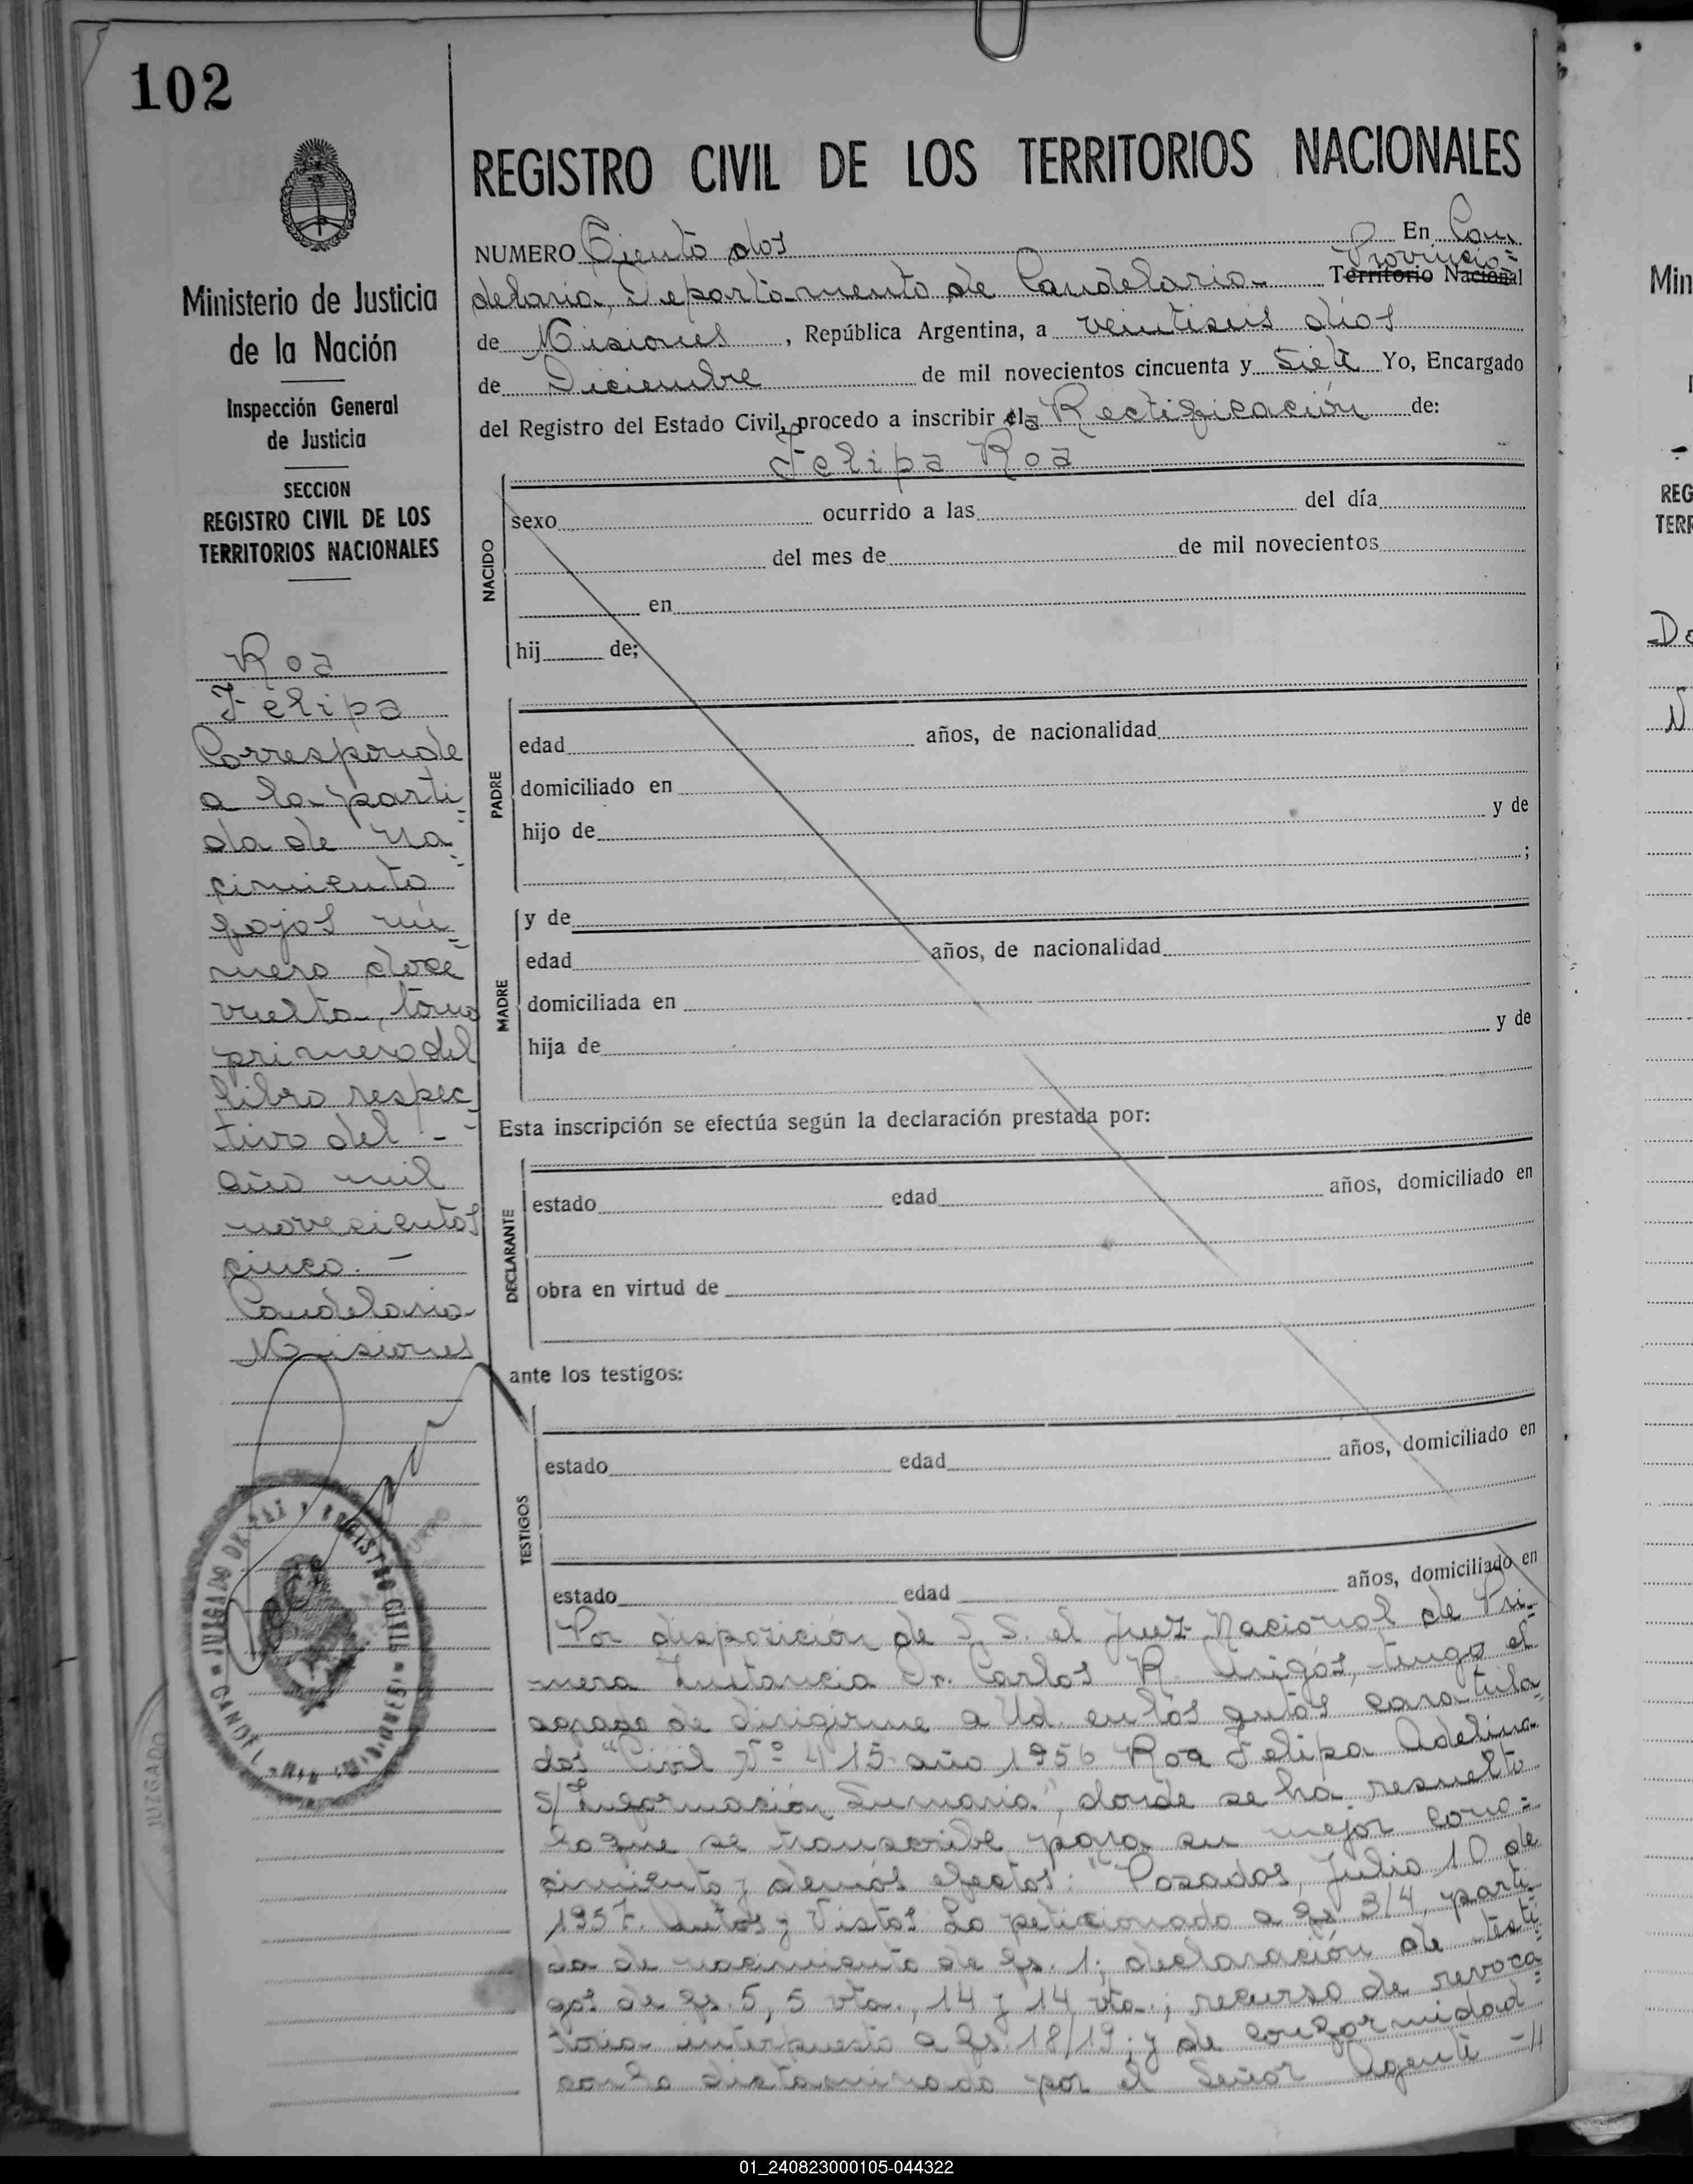 102
Ministerio de Justicia
de la Nación
Inspección General
de Justicia
SECCION
REGISTRO CIVIL DE LOS
TERRITORIOS NACIONALES
Roa
Felipa
Corresponde
a la parti
da de na
cimiento
fojas nú
mero doce
vuelta, tomo
primero del
libro respec
tivo del -
año mil
novecientos
cinco. -
Candelaria
Misiones
REGISTRO CIVIL DE LOS TERRITORIOS NACIONALES
NUMERO Ciento dos En Can
Provincia
delaria, Departamento de Candelaria Territorio Nacional
de Misiones, República Argentina, a veintiseis días
de Diciembre de mil novecientos cincuenta y Siete Yo, Encargado
del Registro del Estado Civil, procedo a inscribir la Rectificación de:
Felipa Roa
NACIDO
sexo ocurrido a las del día
del mes de de mil novecientos
en
hij de;
PADRE
edad años, de nacionalidad
domiciliado en
hijo de y de
;
MADRE
y de
edad años, de nacionalidad
domiciliada en
hija de y de
Esta inscripción se efectúa según la declaración prestada por:
DECLARANTE
estado edad años, domiciliado en
obra en virtud de
ante los testigos:
TESTIGOS
estado edad años, domiciliado en
estado edad años, domiciliado en
Por disposición de S. S. el Juez Nacional de Pri-
mera Instancia Dr. Carlos R. tengo el
agrado de dirigirme a Ud. en los autos caratula
dos "Civil Nº 415 año 1956 Roa Felipa Adelina
s/Información Sumaria", donde se ha resuelto
lo que se transcribe para su mejor cono=
cimiento y demás efectos: "Posadas, Julio 10 de
1957. Autos y Vistos: Lo peticionado a fs 3/4, parti
da de nacimiento de fs. 1; declaración de testi
gos de fs. 5, 5 vta., 14 y 14 vta.; recurso de revoca
toria interpuesto a fs. 18/19; y de conformidad
con lo dictaminado por el Señor Agente -//
JUZGADO DE PAZ Y REGISTRO CIVIL
CANDEL
JUZGADO
Min
REG
TERR
01_240823000105-044322